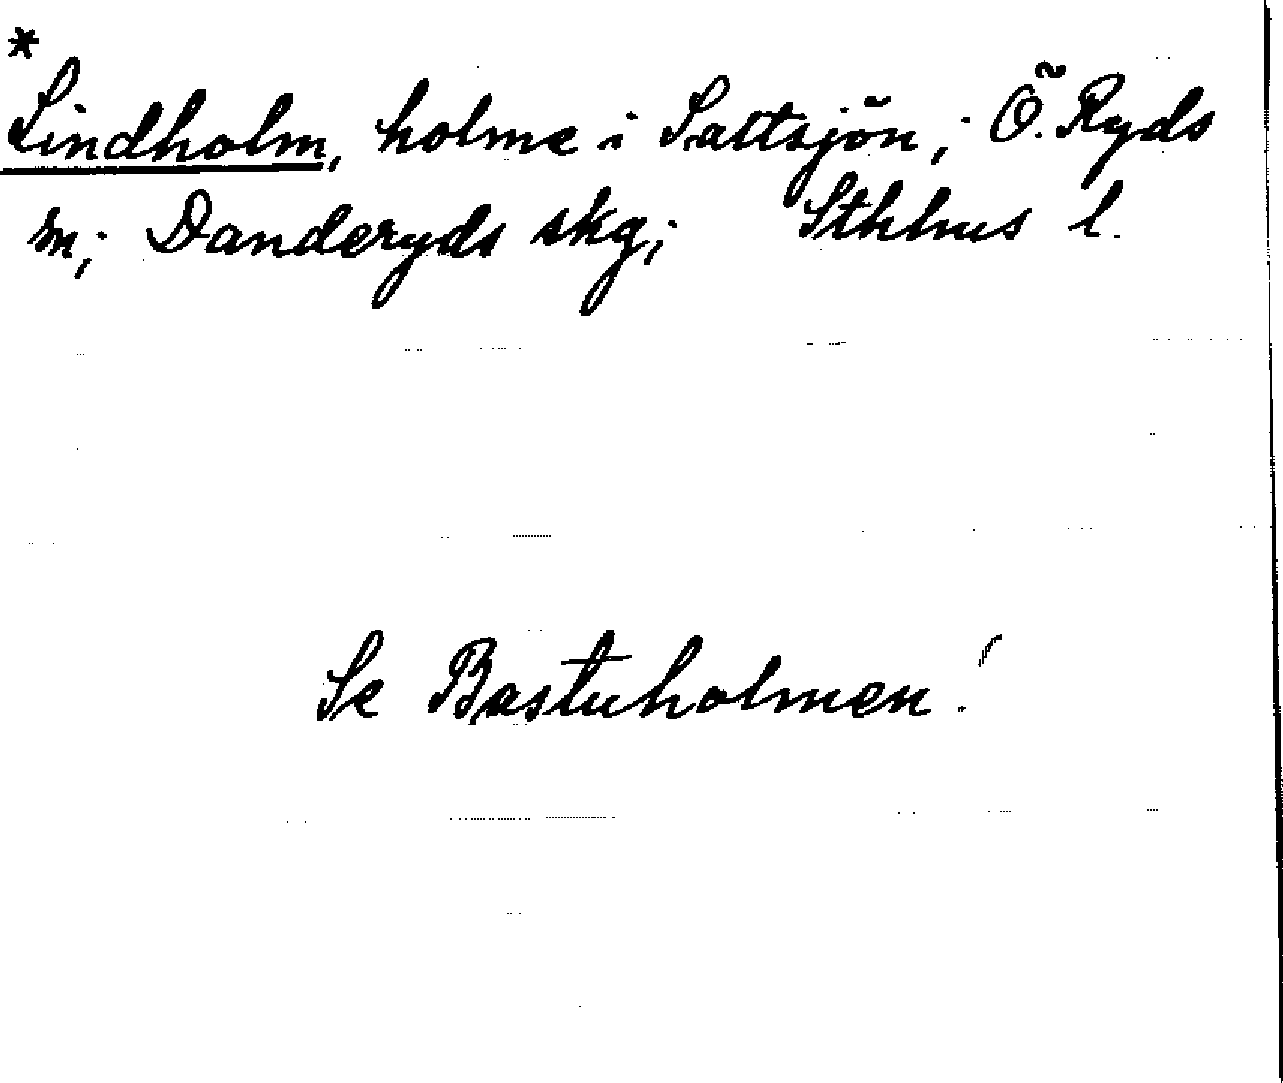 *
Lindholm, holme i Saltsjön; Ö. Ryds
sn; Danderyds skg; Sthlms l.
Se Bastuholmen!